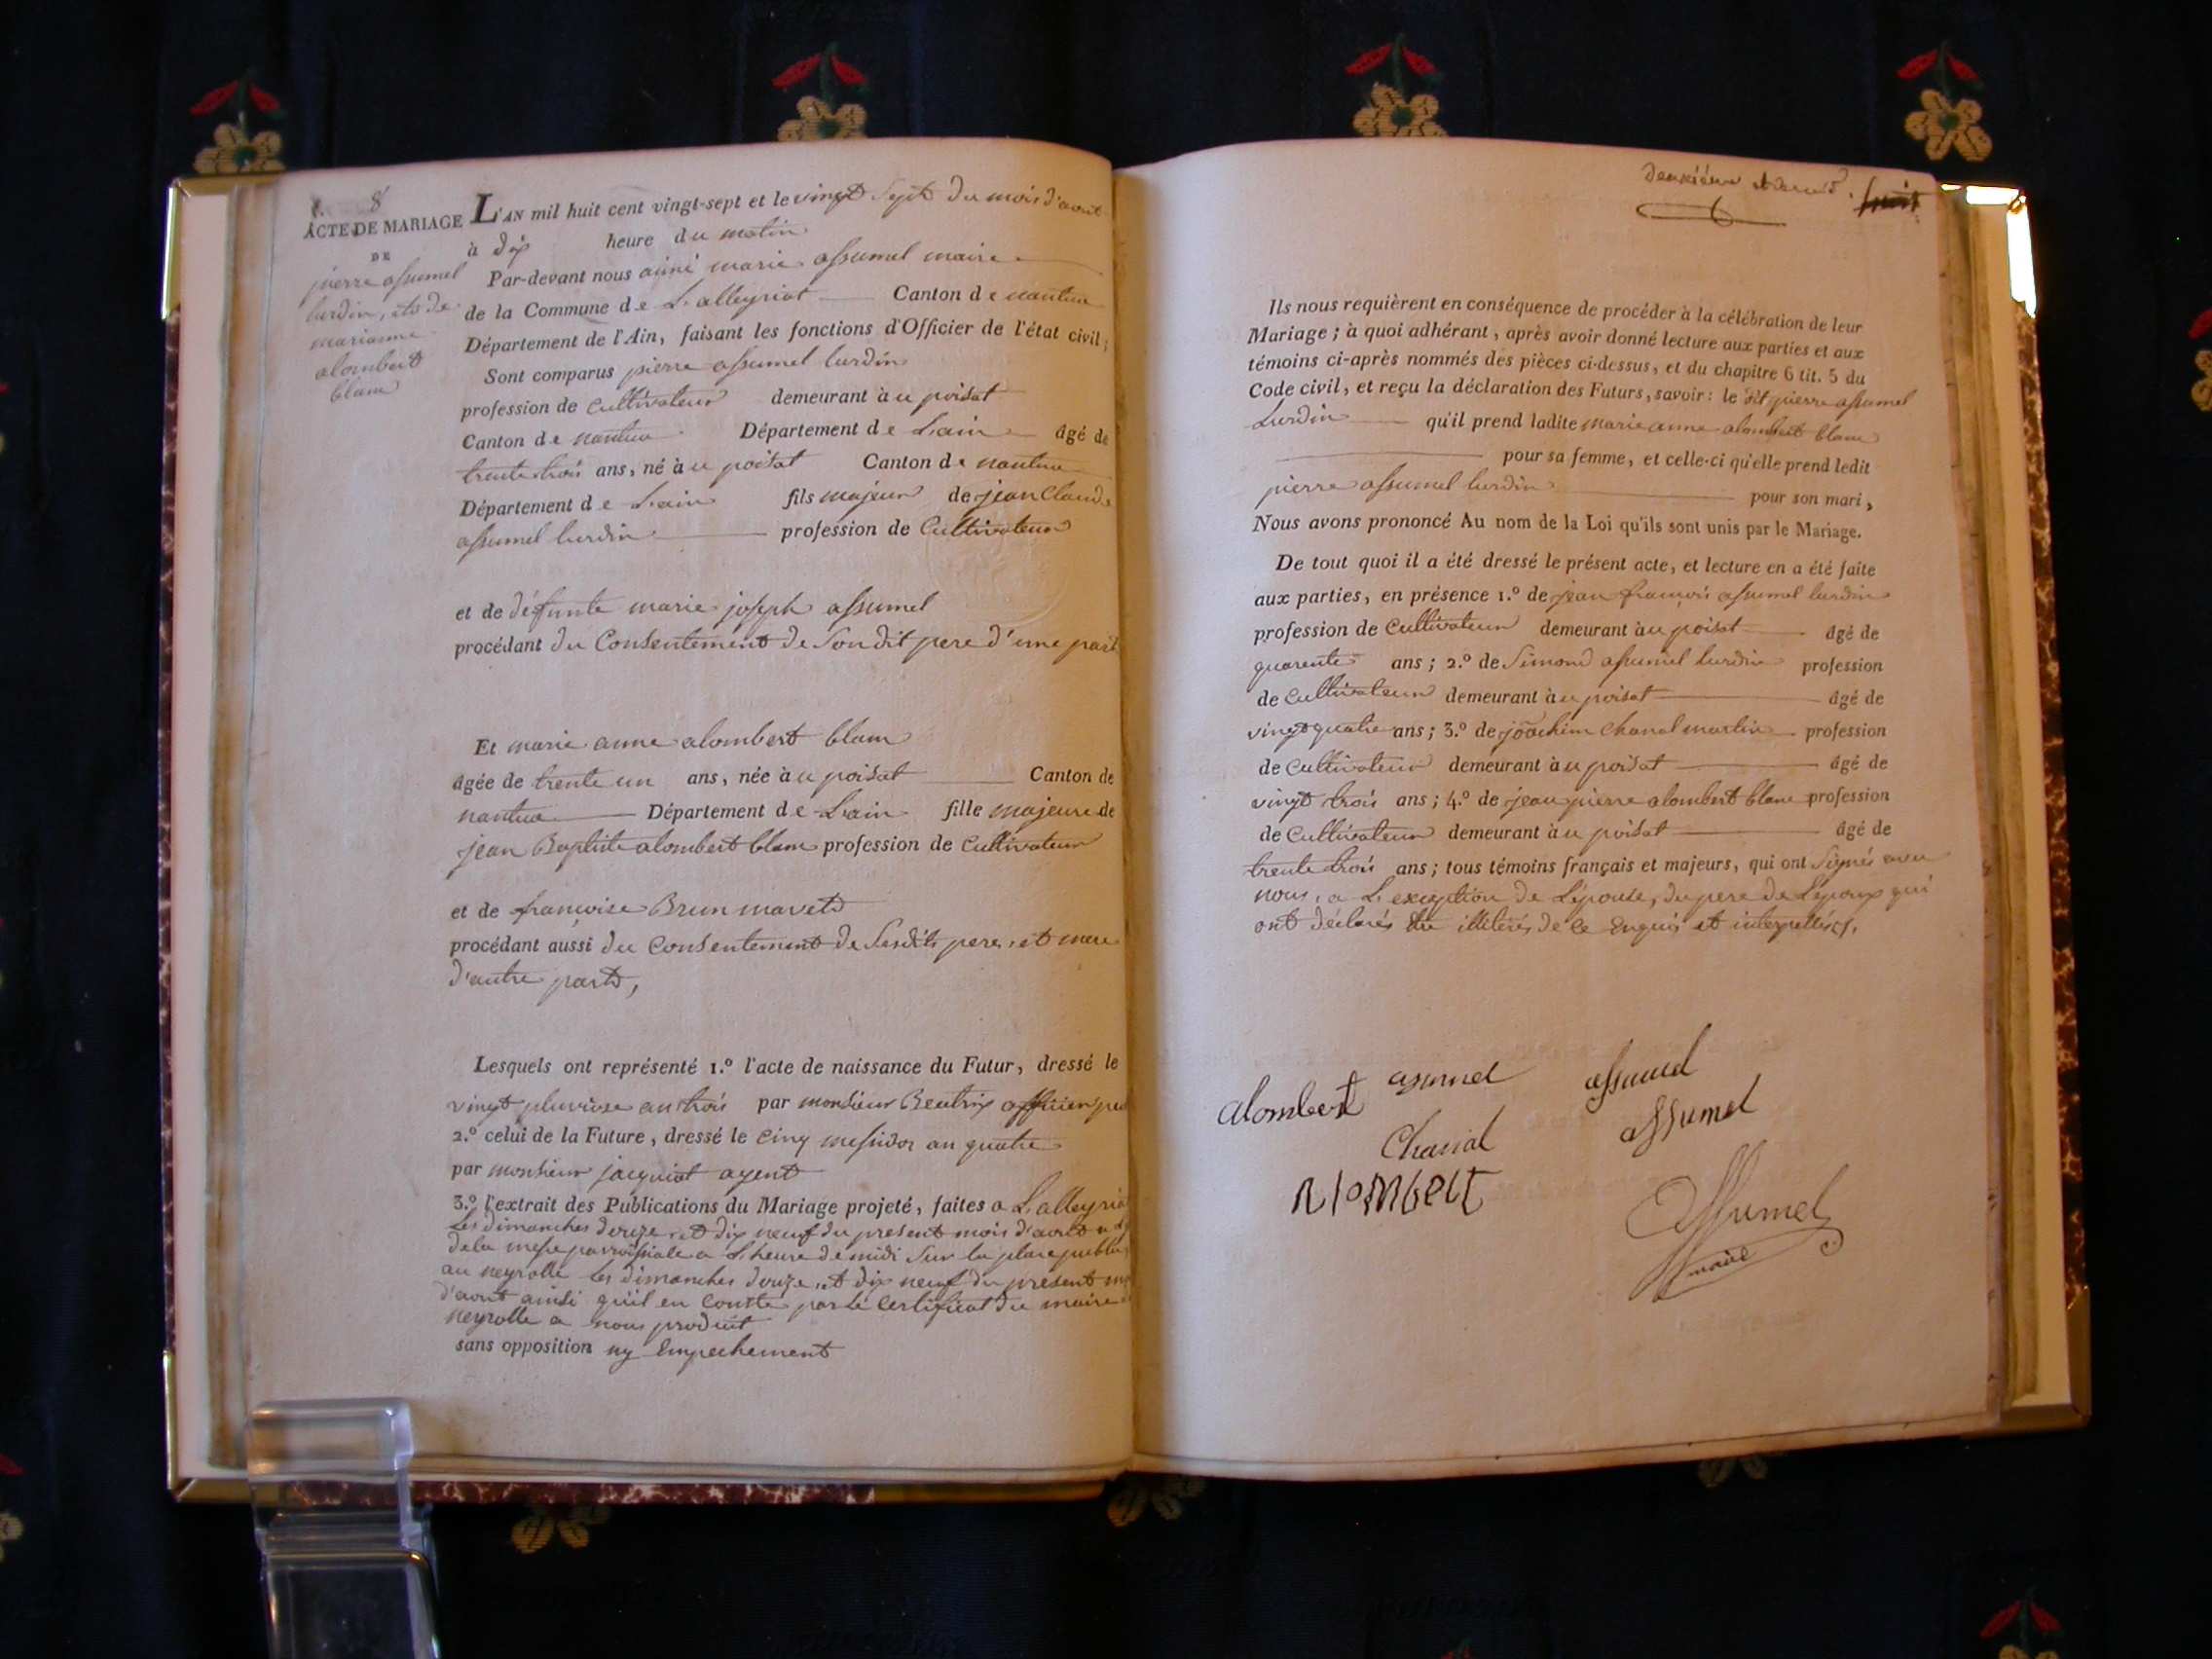 8
ACTE DE MARIAGE
DE
pierre assumel
lurdin, et de
marianne
alombert
blanc
L'AN mil huit cent vingt-sept et le vingt sept du mois d'aout
à dix heure du matin
Par-devant nous aimé marie assumel maire
de la Commune de L'alleyriat Canton de nantua
Département de l'Ain, faisant les fonctions d'Officier de l'état civil;
Sont comparus pierre assumel lurdin
profession de Cultivateur demeurant à u poisat
Canton de nantua Département de L'ain âgé de
trente trois ans, né à u poisat Canton de nantua
Département de L'ain fils majeur de jean Claude
assumel lurdin profession de Cultivateur
et de défunte marie joseph assumel
procédant du Consentement de Son dit pere d'une part
Et marie anne alombert blanc
âgée de trente un ans, née à u poisat Canton de
nantua Département de L'ain fille majeure de
jean Baptiste alombert blanc profession de Cultivateur
et de françoise Brun mavet
procédant aussi du Consentement de Sesdits pere, et mere
d'autre part,
Lesquels ont représenté 1.º l'acte de naissance du Futur, dressé le
vingt pluviose an trois par monsieur Beatrix officier
2.º celui de la Future, dressé le cinq messidor an quatre
par monsieur jacquiot agent
3.º l'extrait des Publications du Mariage projeté, faites a L'alleyriat
les dimanches douze, et dix neuf du present mois d'aout
de la messe parroissiale a L'heure de midi Sur la place publique
au neyrolle les dimanches douze, et dix neuf du present
d'aout ainsi qu'il en Conste par le Certificat du maire
neyrolle a nous produit
sans opposition ny Empechement
deuxiéme et dernié.
Ils nous requièrent en conséquence de procéder à la célébration de leur
Mariage; à quoi adhérant, après avoir donné lecture aux parties et aux
témoins ci-après nommés des pièces ci-dessus, et du chapitre 6 tit. 5 du
Code civil, et reçu la déclaration des Futurs, savoir: le dit pierre assumel
Lurdin qu'il prend ladite marie anne alombert blanc
pour sa femme, et celle-ci qu'elle prend ledit
pierre assumel lurdin pour son mari,
Nous avons prononcé Au nom de la Loi qu'ils sont unis par le Mariage.
De tout quoi il a été dressé le présent acte, et lecture en a été faite
aux parties, en présence 1.º de jean françois assumel lurdin
profession de Cultivateur demeurant à u poisat âgé de
quarente ans; 2.º de Simond assumel lurdin profession
de Cultivateur demeurant à u poisat âgé de
vingt quatre ans; 3.º de joachim Chanal martin profession
de Cultivateur demeurant à u poisat âgé de
vingt trois ans; 4.º de jean pierre alombert blanc profession
de Cultivateur demeurant à u poisat âgé de
trente trois ans; tous témoins français et majeurs, qui ont Signés avec
nous, a L'exception de L'épouse, du pere de L'epoux qui
ont déclarés être illiterés de ce Enquis et interpellés.
alombert assumel assumel
Chanal assumel
Alombert
Assumel
maire